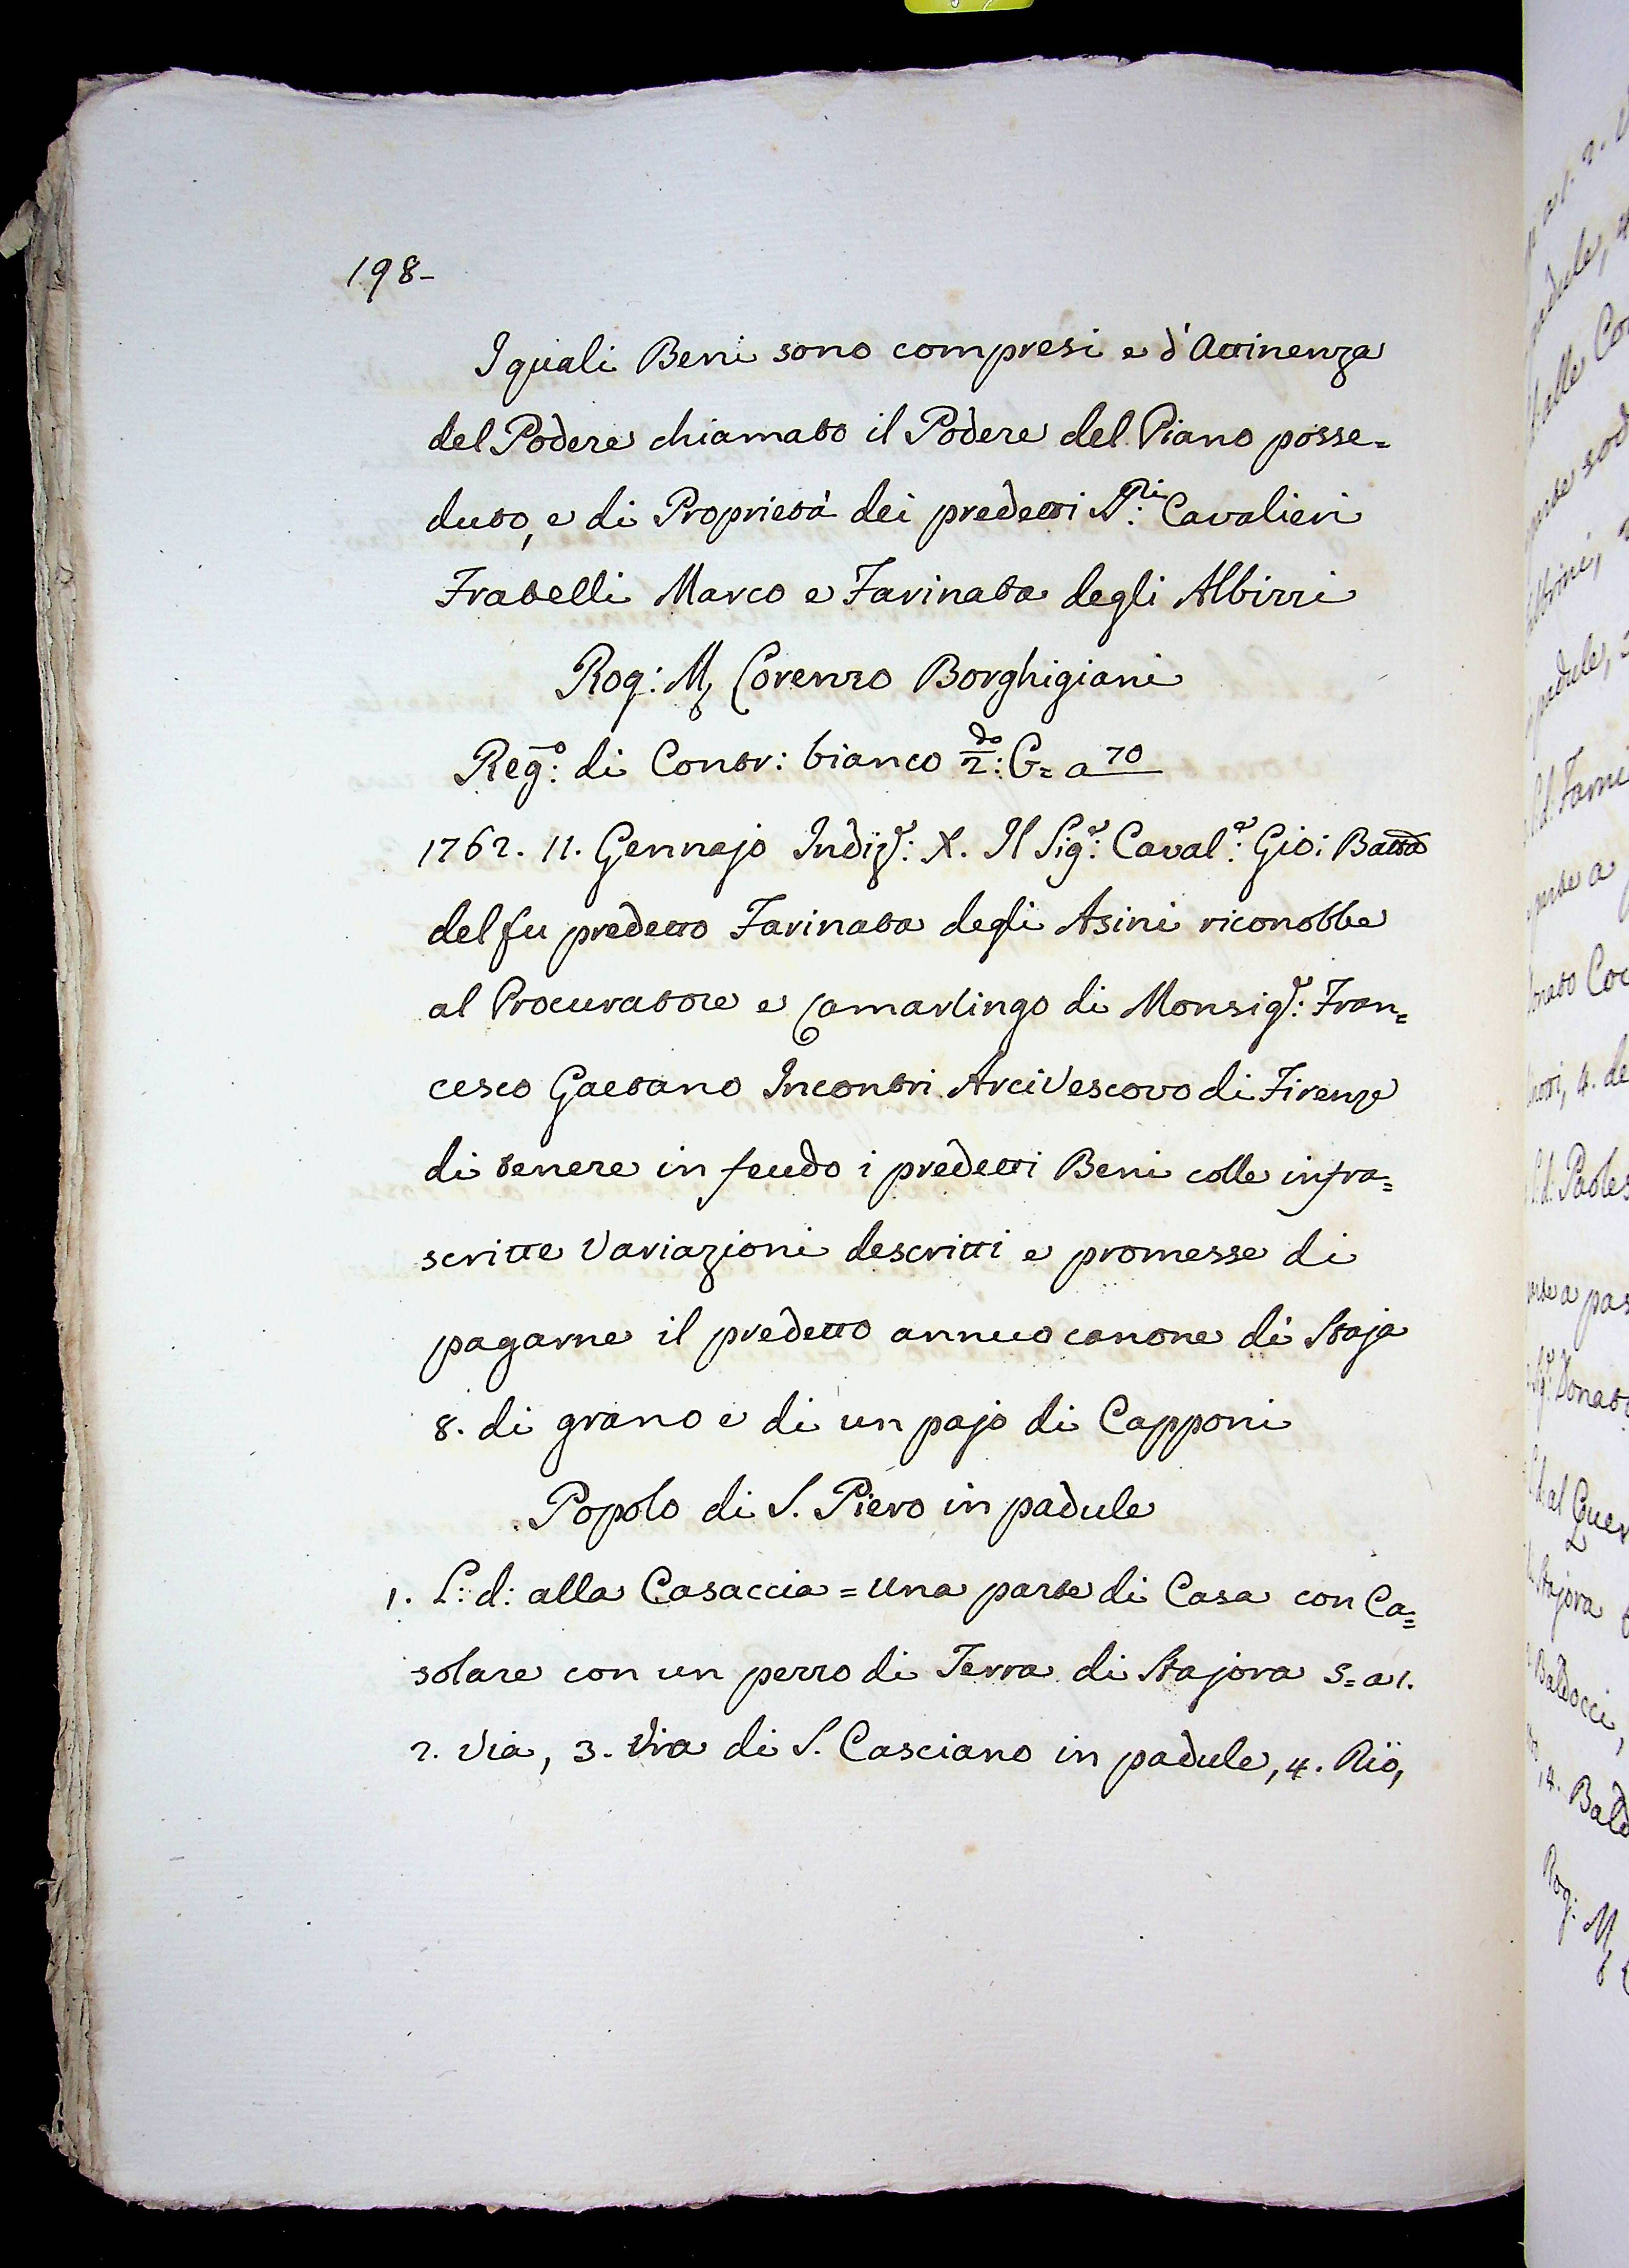 198-
I quali Beni sono compresi e d'Attinenza
del Podere chiamato il Podere del Piano posse=
duto, e di Proprietà dei predetti S.ri: Cavalieri
Fratelli Marco e Farinata degli Albizzi
Rog: M, Lorenzo Borghigiani
Reg.o: di Contr: bianco 2.do: C= a 70
1762. 11. Gennajo Indiz.e: X. Il Sig.e: Caval.e: Gio: Batta
del fu predetto Farinata degli Asini riconobbe
al Procuratore e Camarlingo di Monsig.r: Fran=
cesco Gaetano Incontri Arcivescovo di Firenze
di tenere in feudo i predetti Beni colle infra=
scritte Variazioni descritti e promesse di
pagarne il predetto annuo canone di Staja
8. di grano e di un pajo di Capponi
Popolo di S. Piero in padule
1. L: d: alla Casaccia = una parte di Casa con Ca=
solare con un pezzo di Terra di Stajora 5= a 1.
2. Via, 3. Via di S. Casciano in padule, 4. Rio,